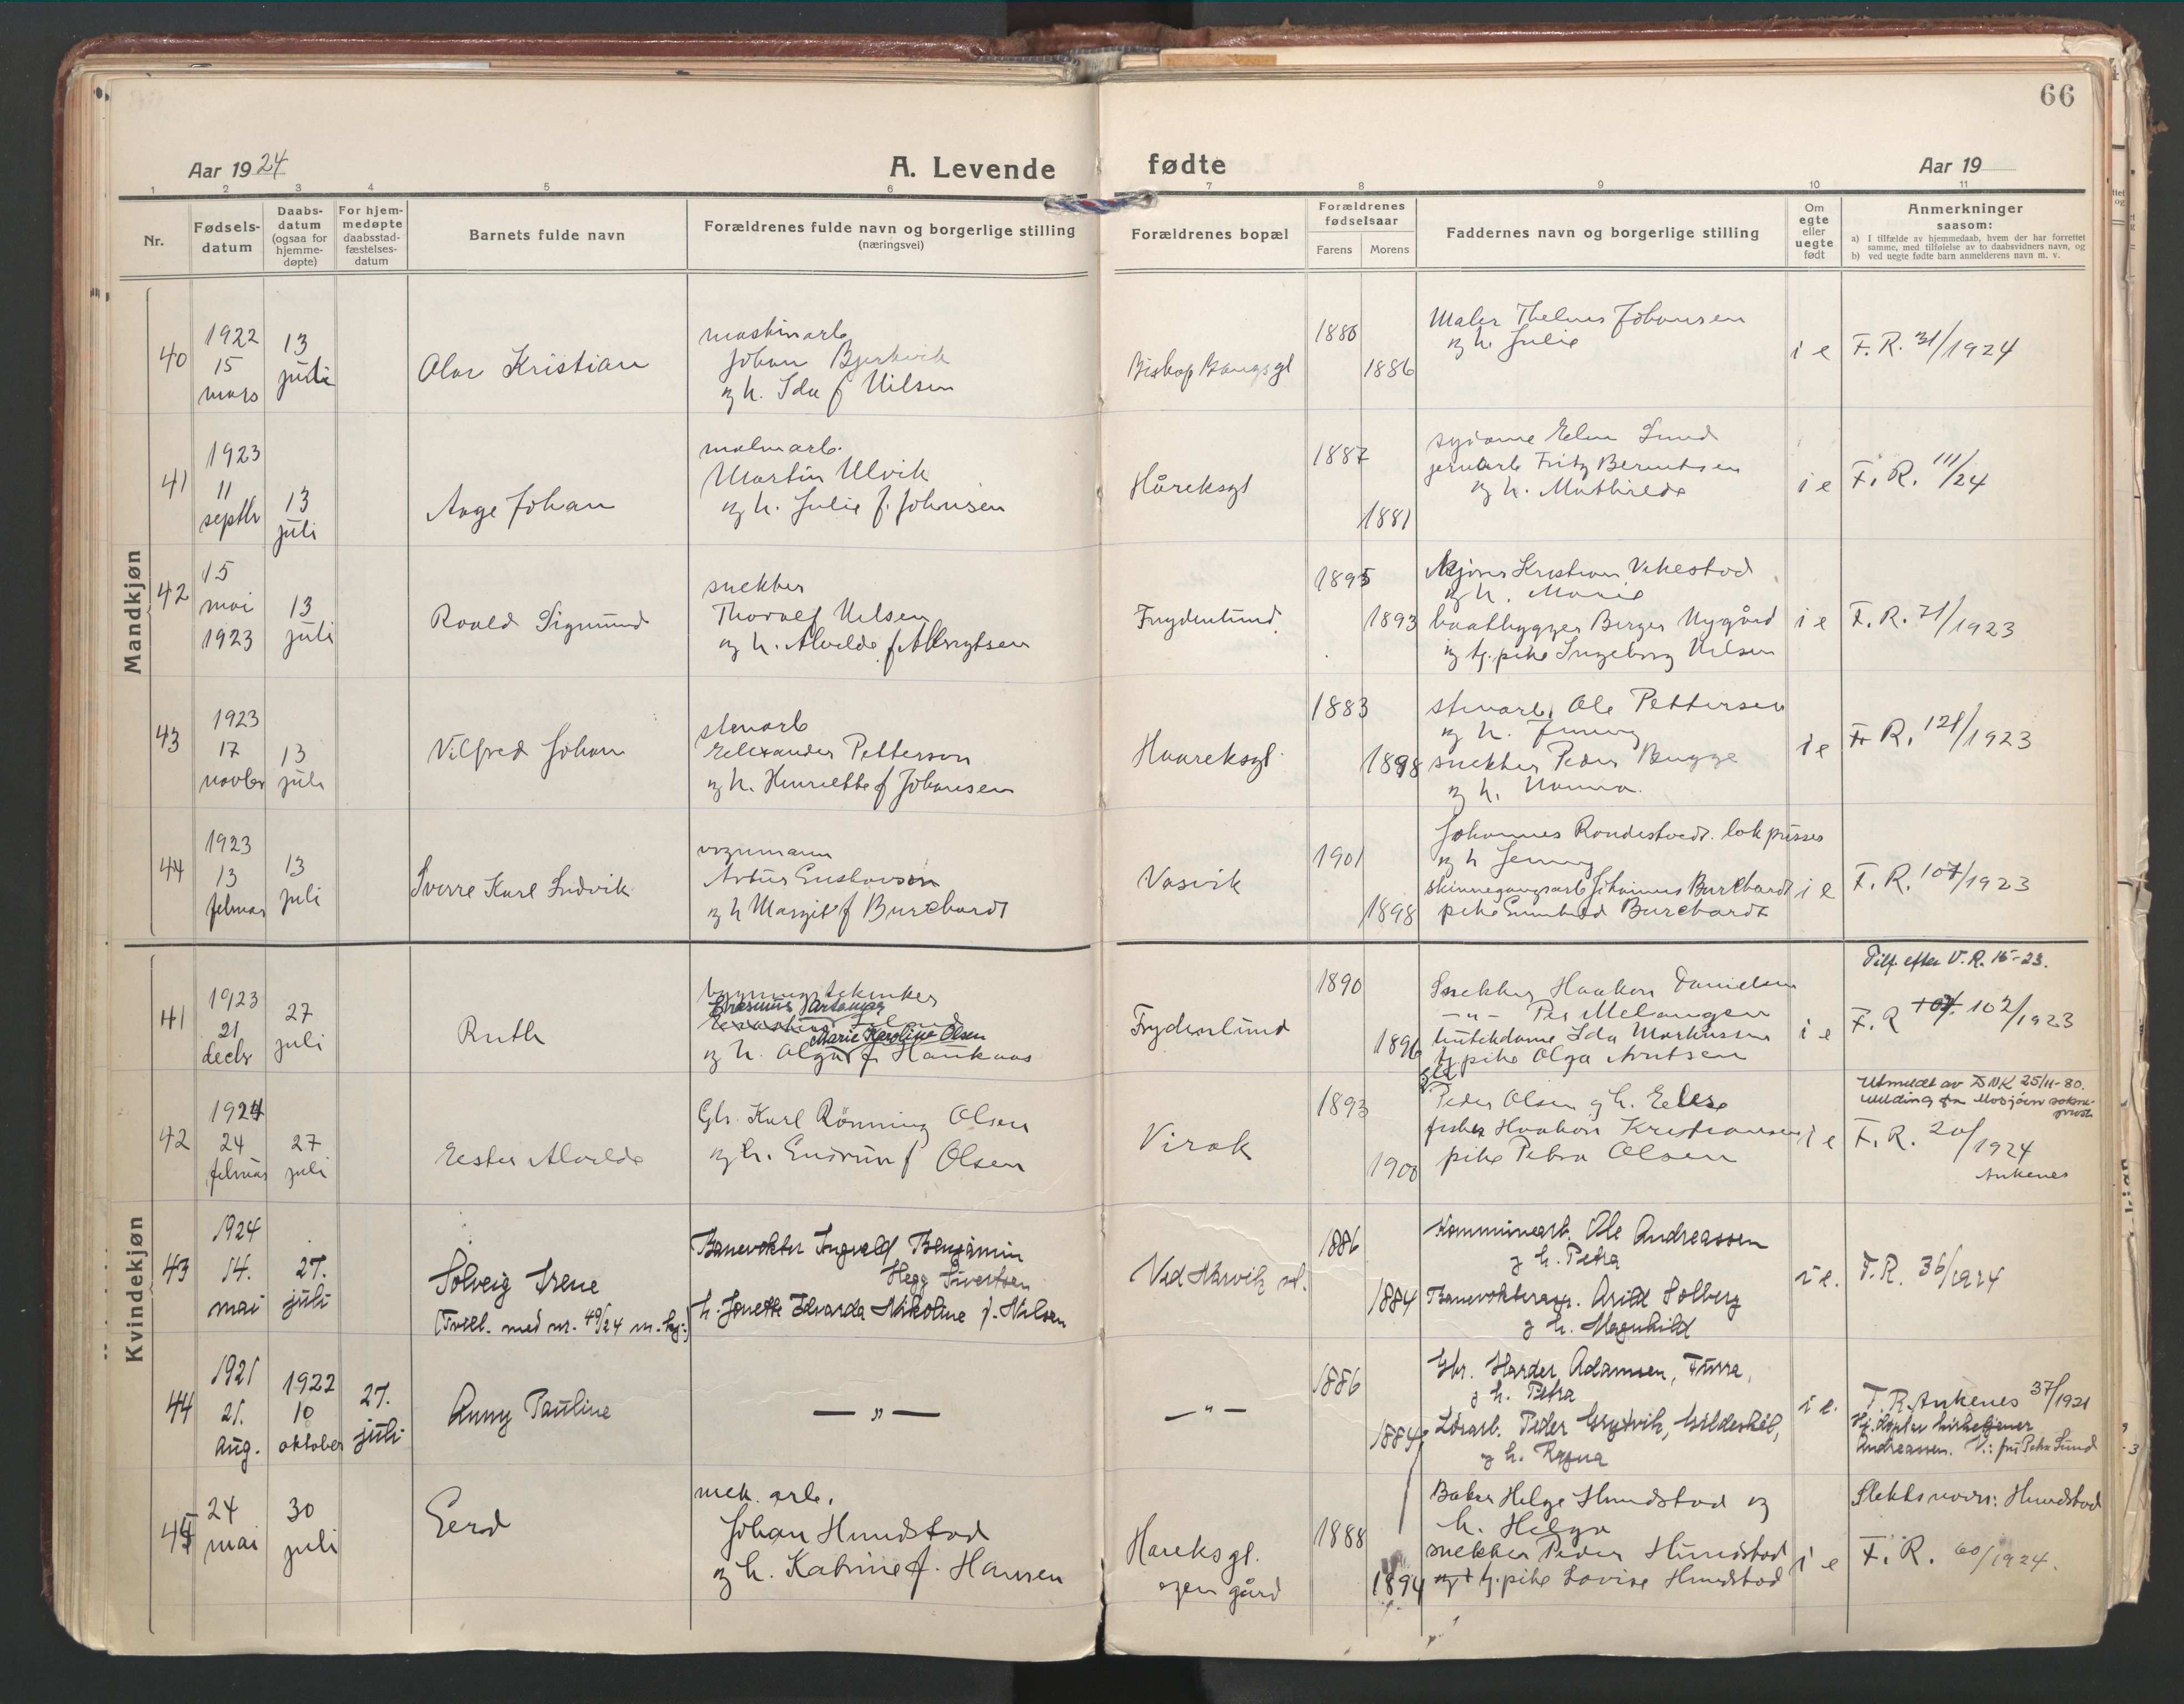 66
Aar 1924
A. Levende
fødte
Aar 19
1 2 3 4 5 6 7 8 9 10 11
Nr.
Fødsels-
datum
Daabs-
datum
(ogsaa for
hjemme-
døpte)
For hjem-
medøpte
daabsstad-
fæstelses-
datum
Barnets fulde navn
Forældrenes fulde navn og borgerlige stilling
(næringsvei)
Forældrenes bopæl
Forældrenes
fødselsaar
Farens
Morens
Faddernes navn og borgerlige stilling
Om
egte
eller
uegte
født
Anmerkninger
saasom:
a) I tilfælde av hjemmedaab, hvem der har forrettet
samme, med tilføielse av to daabsvidners navn, og
b) ved uegte fødte barn anmelderens navn m. v.
Mandkjøn
40
1922
15
mars
13
juli
Olav Kristian
maskinarb
Johan Bjerkvik
og h. Ida f Nilsen
Biskop Bangsgt
1886
Maler Thelmes Johansen
og h. Julie
i e
F. R. 31/1924
41
1923
11
septbr
13
juli
Aage Johan
malmarb.
Martin Ulvik
og h. Julie f. Johnsen
Håreksgt
1887
1881
Sund
jernarb Fritz Berntsen
og h. Mathilde
i e
F. R. 111/24
42
15
mai
1923
13
juli
Roald Sigmund
snekker
Thoralf Nilsen
og h. Alvilde f Albrigtsen
Frydenlund
1895
1893
Kristian Vikestad
og h. Marie
baatbygger Berger Nygård
og tj. pike Ingeborg Nilsen
i e
F. R. 71/1923
43
1923
17
novbr
13
juli
Vilfred Johan
stenarb
Petterson
og h. Henriette f Johansen
Haareksgt
1883
1898
stenarb. Ole Pettersen
og h. Jenny
snekker Peder Bugge
og h. Nanna.
i e
F. R. 121/1923
44
1923
13
februar
13
juli
Sverre Karl Ludvik
vognmann
Artur Gustavson
og h Margit f Burchardt
Vasvik
1901
1898
Johannes Rondestvedt. lokpusser
og h Jenny
skinnegangsarb Johannes Burchardt
pike Gunhild Burchardt
i e
F. R. 107/1923
Kvindekjøn
41
1923
21
decbr
27
juli
Ruth
bygningstekniker
Marie Karoline Olsen
og h. Olga f. Haukaas
Frydenlund
1890
1896
Snekker Haakon Danielsen
— " — Per Melangen
butikdame Ida Markussen
tj. pike Olga Arntsen
i e
Tilf. efter V. R. 15-23.
F. R 102/1923
42
1924
24
februar
27
juli
Ester Alvilde
Gbr. Karl Rönning Olsen
og h. Gudrun f Olsen
Virak
1893
1900
Peder Olsen og h. Elise
fisker Haakon Kristiansen
pike Petra Olsen
i e
Utmeldt av DNK 25/11-80.
Melding fra Mosjøen sokne-
prest
F. R. 20/1924
Ankenes
43
1924
14.
mai
27.
juli
Solveig Irene
(Tvill. med nr. 49/24 m. kj.)
Banevokter Ingvald Benjamin
Hegg Sivertsen
h. Jonette Edvarda Nikoline f. Nilsen
Ved Narvik st.
1886
1884
Kommunearb. Ole Andreassen
g h. Petra
Banevokterasp. Arild Solberg
g h. Magnhild
i e.
F. R. 36/1924
44
1921
21.
aug.
1922
10
oktober
27.
juli
Anny Pauline
— " —
— " —
1886
1884
Gbr. Harder Adamsen, Furre,
g h. Petra
Løsarb. Peder Grytvik, Gildeskål,
g h. Ragna
i e.
F. R. Ankenes 37/1921
Hj. døpt av kirketjener
Andreassen. V.: fru Petra Lund
45
24
mai
30
juli
Gerd
mek. arb.
Johan Hundstad
og h. Katrine f. Hansen
Hareksgt.
egen gård
1888
1894
Baker Helge Hundstad og
h. Helga
snekker Peder Hundstad
og tj. pike Lovise Hundstad
i e
Slektsnavn: Hundstad
F. R. 60/1924.